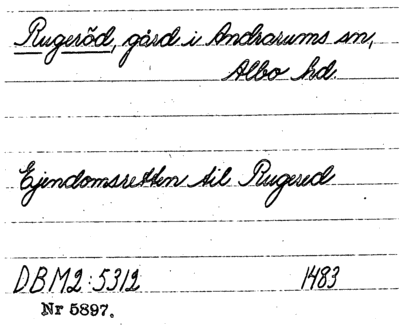 Rugeröd, gård i Andrarums sn,
Albo hd.
Ejendomsretten til Rugered
DBM2:5312 1483
Nr 5897.